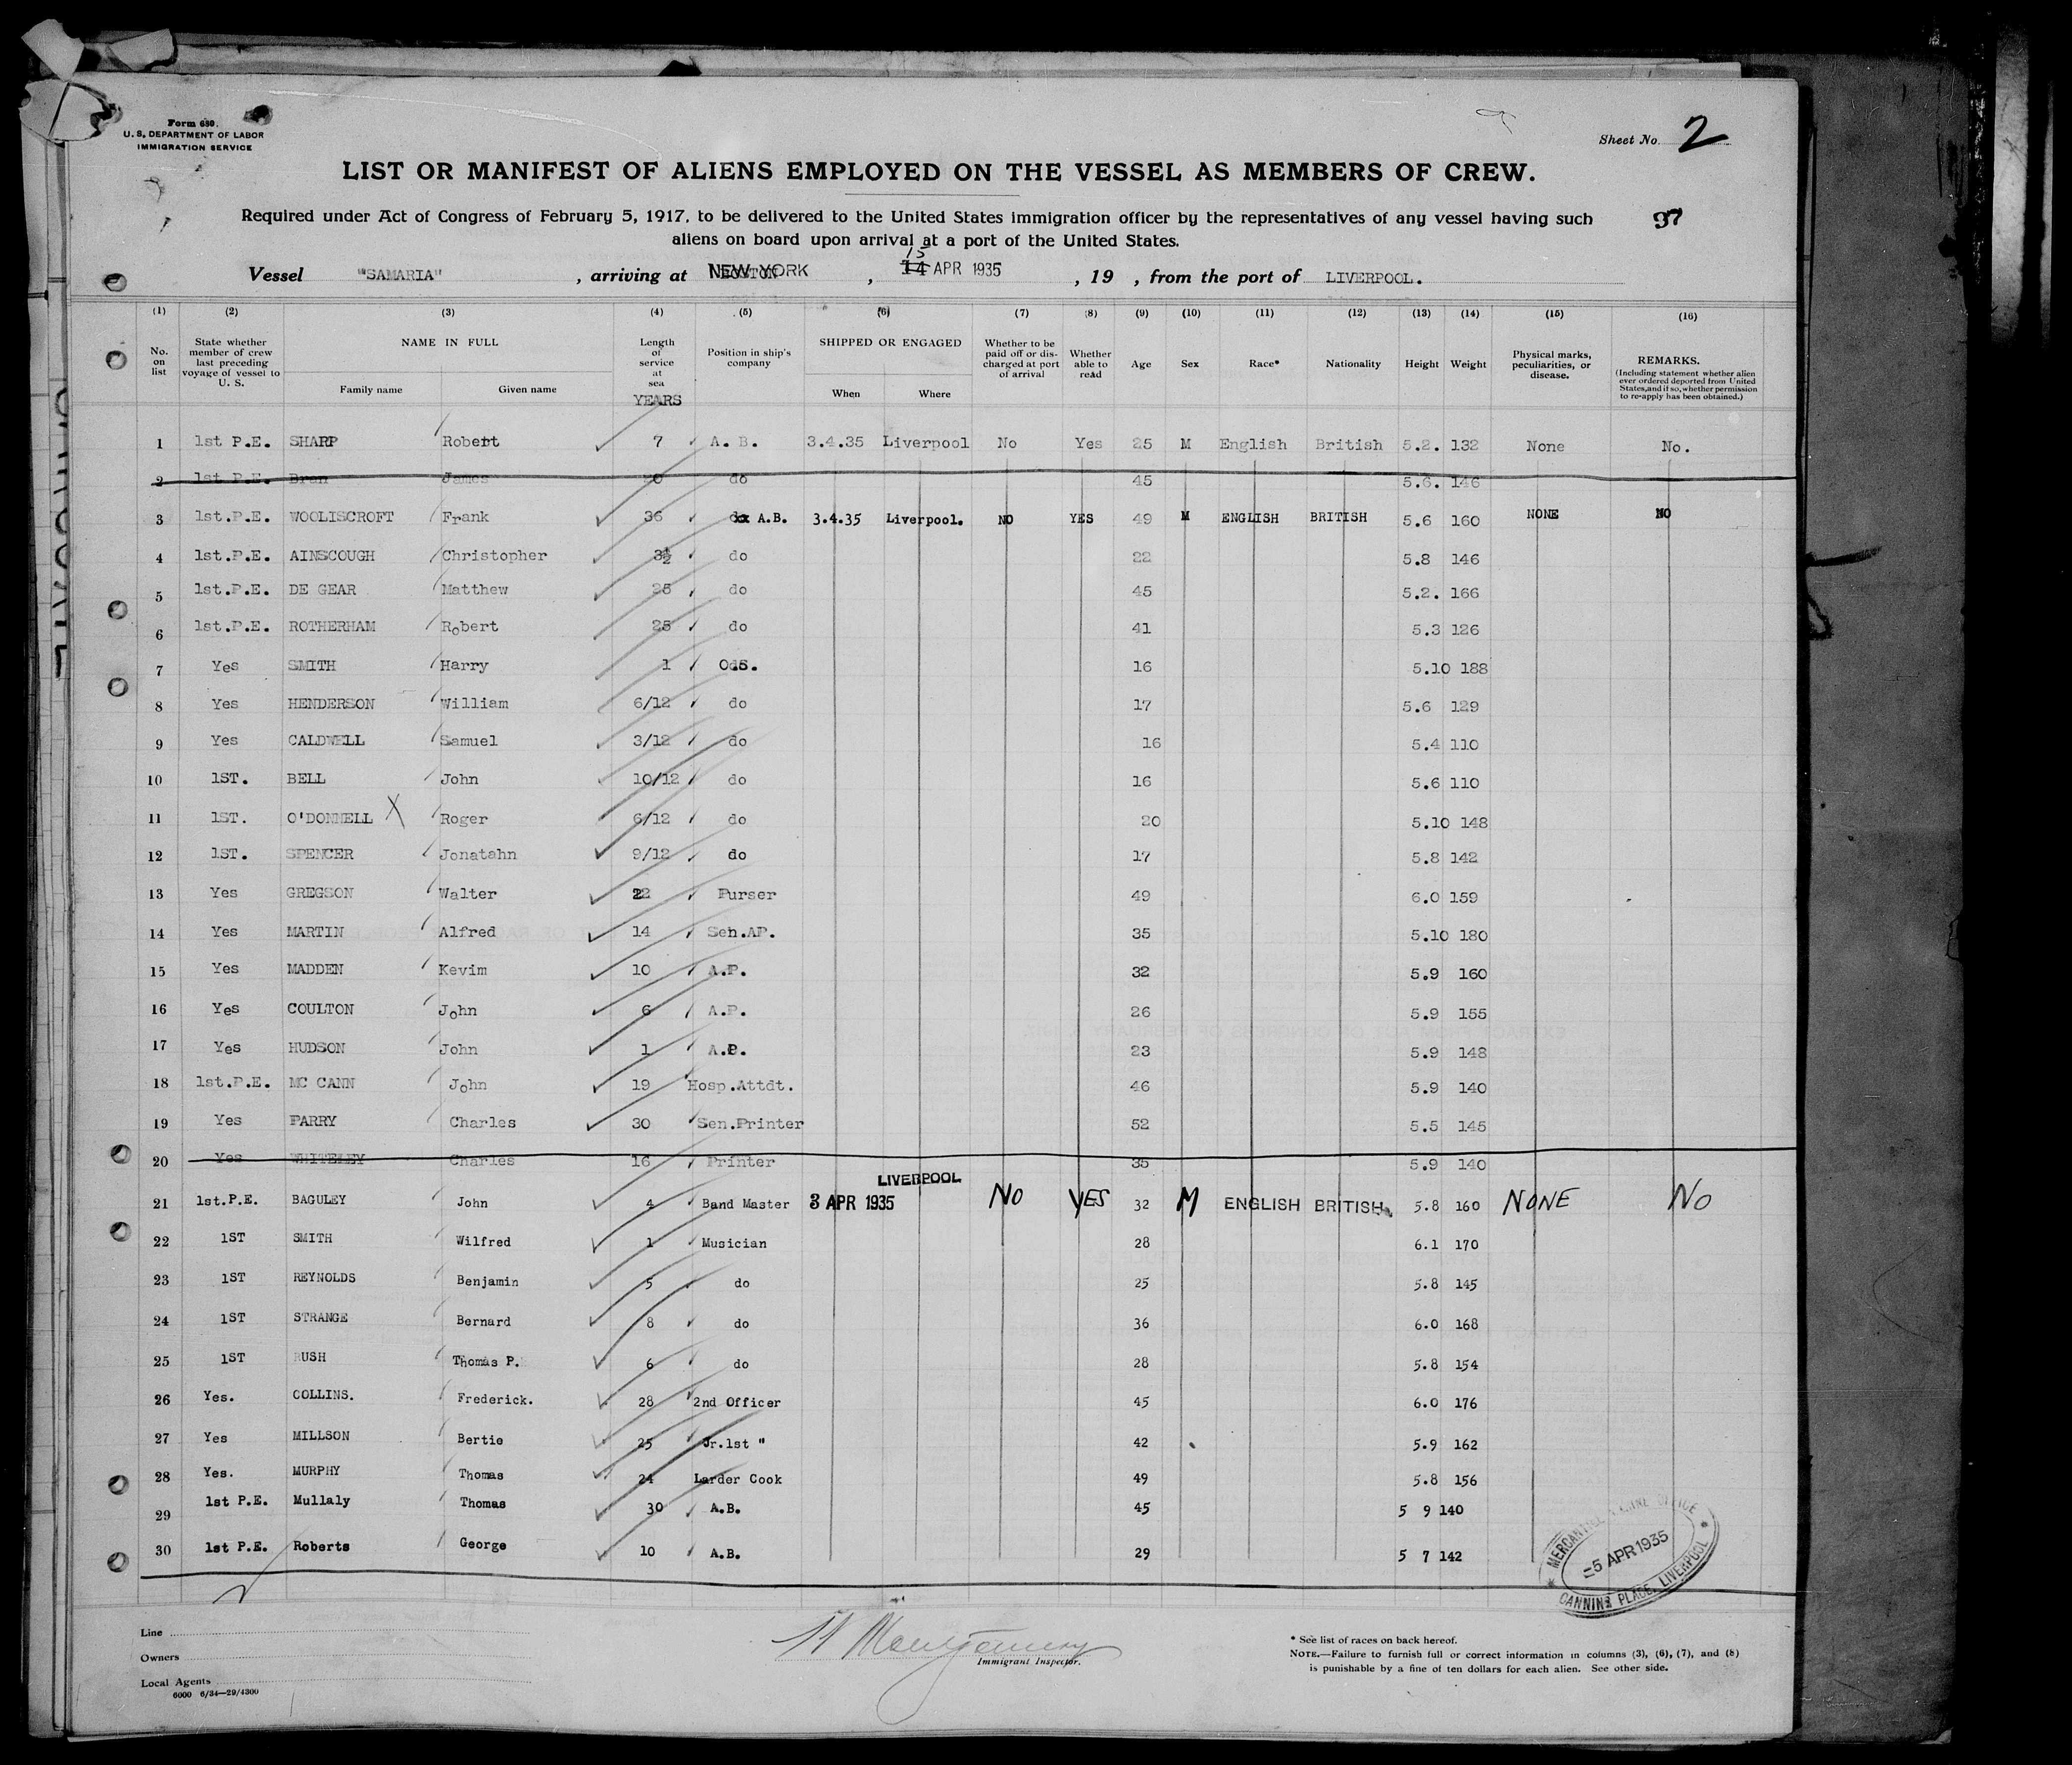 Form 680.
U. S. DEPARTMENT OF LABOR
IMMIGRATION SERVICE
Sheet No. 2
LIST OR MANIFEST OF ALIENS EMPLOYED ON THE VESSEL AS MEMBERS OF CREW.
Required under Act of Congress of February 5, 1917, to be delivered to the United States immigration officer by the representatives of any vessel having such
aliens on board upon arrival at a port of the United States.
37
Vessel "SAMARIA", arriving at NEW YORK, 15 14 APR 1935, 19 , from the port of LIVERPOOL.
(1) (2) (3) (4) (5) (6) (7) (8) (9) (10) (11) (12) (13) (14) (15) (16)
No. on list State whether member of crew last preceding voyage of vessel to U. S. NAME IN FULL Family name Given name Length of service at sea YEARS Position in ship's company SHIPPED OR ENGAGED When Where Whether to be paid off or discharged at port of arrival Whether able to read Age Sex Race* Nationality Height Weight Physical marks, peculiarities, or disease. REMARKS. (Including statement whether alien ever ordered deported from United States, and if so, whether permission to re-apply has been obtained.)
1 1st P.E. SHARP Robert 7 A. B. 3.4.35 Liverpool No Yes 25 M English British 5.2. 132 None No.
2 1st P.E. Bran James 20 do 45 5.6. 146
3 1st.P.E. WOOLISCROFT Frank 36 A.B. 3.4.35 Liverpool. NO YES 49 M ENGLISH BRITISH 5.6 160 NONE NO
4 1st.P.E. AINSCOUGH Christopher 3½ do 22 5.8 146
5 1st.P.E. DE GEAR Matthew 25 do 45 5.2. 166
6 1st.P.E. ROTHERHAM Robert 25 do 41 5.3 126
7 Yes SMITH Harry 1 O.S. 16 5.10 188
8 Yes HENDERSON William 6/12 do 17 5.6 129
9 Yes CALDWELL Samuel 3/12 do 16 5.4 110
10 1ST. BELL John 10/12 do 16 5.6 110
11 1ST. O'DONNELL X Roger 6/12 do 20 5.10 148
12 1ST. SPENCER Jonatahn 9/12 do 17 5.8 142
13 Yes GREGSON Walter 22 Purser 49 6.0 159
14 Yes MARTIN Alfred 14 Sen.AP. 35 5.10 180
15 Yes MADDEN Kevim 10 A.P. 32 5.9 160
16 Yes COULTON John 6 A.P. 26 5.9 155
17 Yes HUDSON John 1 A.P. 23 5.9 148
18 1st.P.E. MC CANN John 19 Hosp.Attdt. 46 5.9 140
19 Yes PARRY Charles 30 Sen.Printer 52 5.5 145
20 Yes WHITELEY Charles 16 Printer 35 5.9 140
21 1st.P.E. BAGULEY John 4 Band Master 3 APR 1935 LIVERPOOL NO YES 32 M ENGLISH BRITISH 5.8 160 NONE NO
22 1ST SMITH Wilfred 1 Musician 28 6.1 170
23 1ST REYNOLDS Benjamin 5 do 25 5.8 145
24 1ST STRANGE Bernard 8 do 36 6.0 168
25 1ST RUSH Thomas P. 6 do 28 5.8 154
26 Yes. COLLINS. Frederick. 28 2nd Officer 45 6.0 176
27 Yes MILLSON Bertie 25 Jr.1st " 42 5.9 162
28 Yes. MURPHY Thomas 24 Larder Cook 49 5.8 156
29 1st P.E. Mullaly Thomas 30 A.B. 45 5 9 140
30 1st P.E. Roberts George 10 A.B. 29 5 7 142
MERCANTILE MARINE OFFICE
5 APR 1935
CANNING PLACE, LIVERPOOL
Line
Owners
Local Agents
6000 6/34—29/4300
Montgomery
Immigrant Inspector.
* See list of races on back hereof.
NOTE.—Failure to furnish full or correct information in columns (3), (6), (7), and (8)
is punishable by a fine of ten dollars for each alien. See other side.